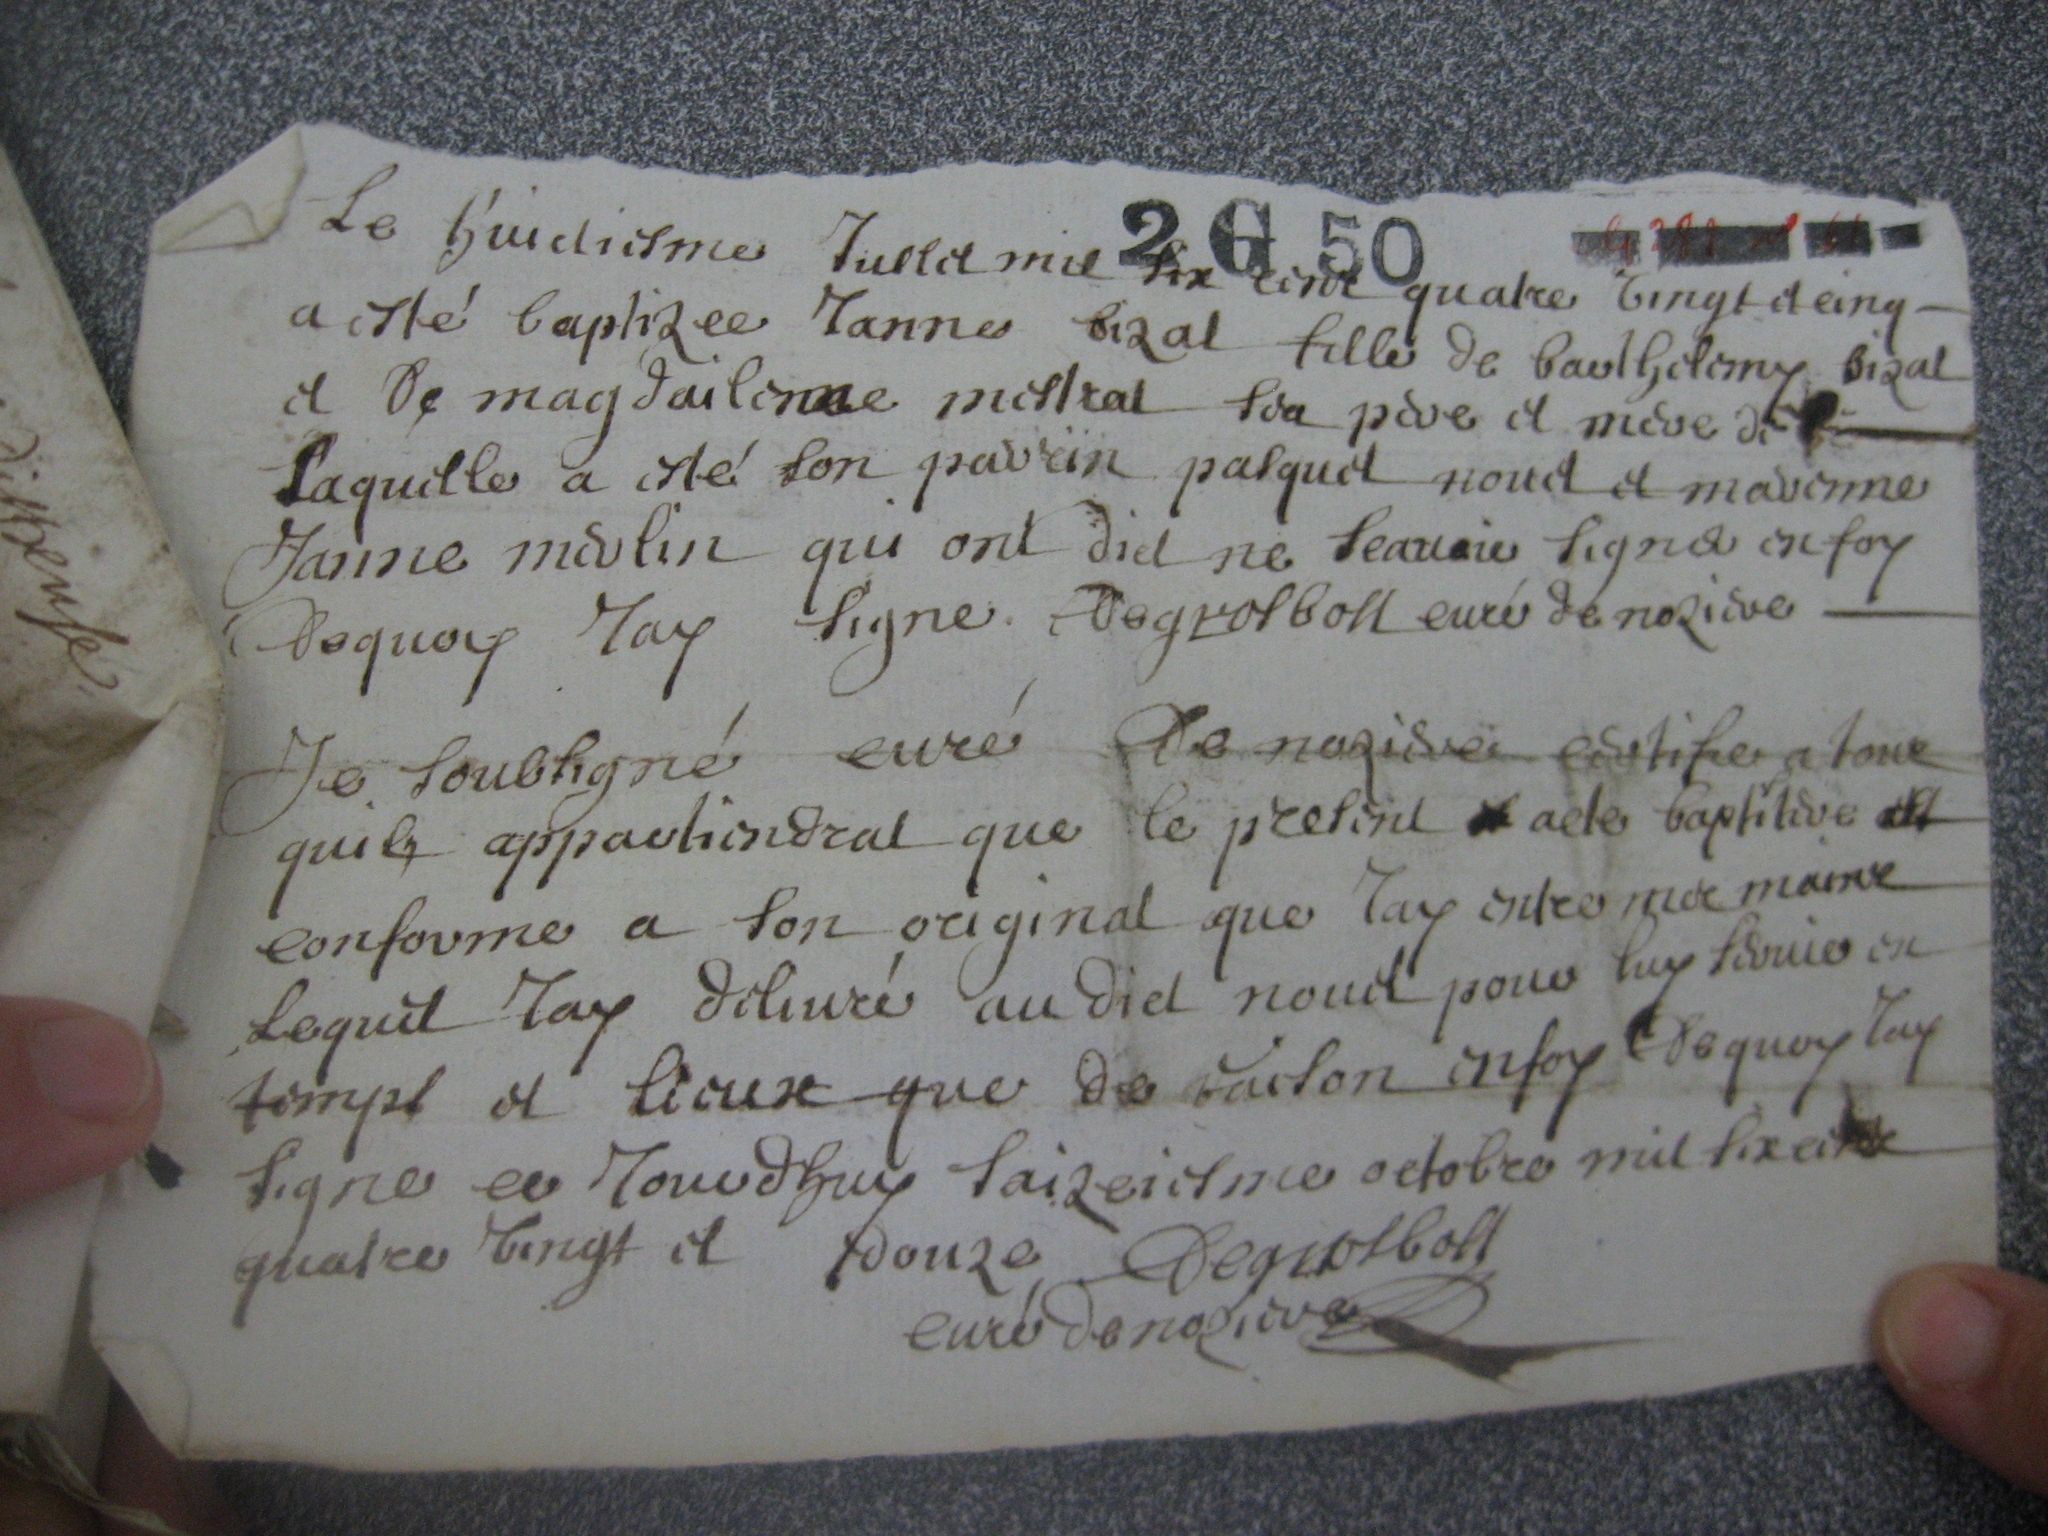 2 G 50
Le huictiesme Jullet mil six cens quatre vingt et cinq
a esté baptizee Janne bizat fille de barthelemy bizat
et de magdaileinne mestrat sea pere et mere de
Laquelle a esté son parrein pasquet nouet et marenne
Janne merlin qui ont dict ne scavoir signer en foy
Dequoy Jay signe. Degrosbost curé de noziere
Je soubsigné curé De noziere certifie a tous
quil appartiendrat que le present acte baptistere est
conforme a son original que Jay entre mes mains
Lequel Jay deliuré audict nouet pour luy seruir en
temps et lieux que de raison en foy Dequoy Jay
signe ce Jourdhuy saizeiesme octobre mil six cens
quatre vingt et douze Degrosbost
curé de noziere
dispense.